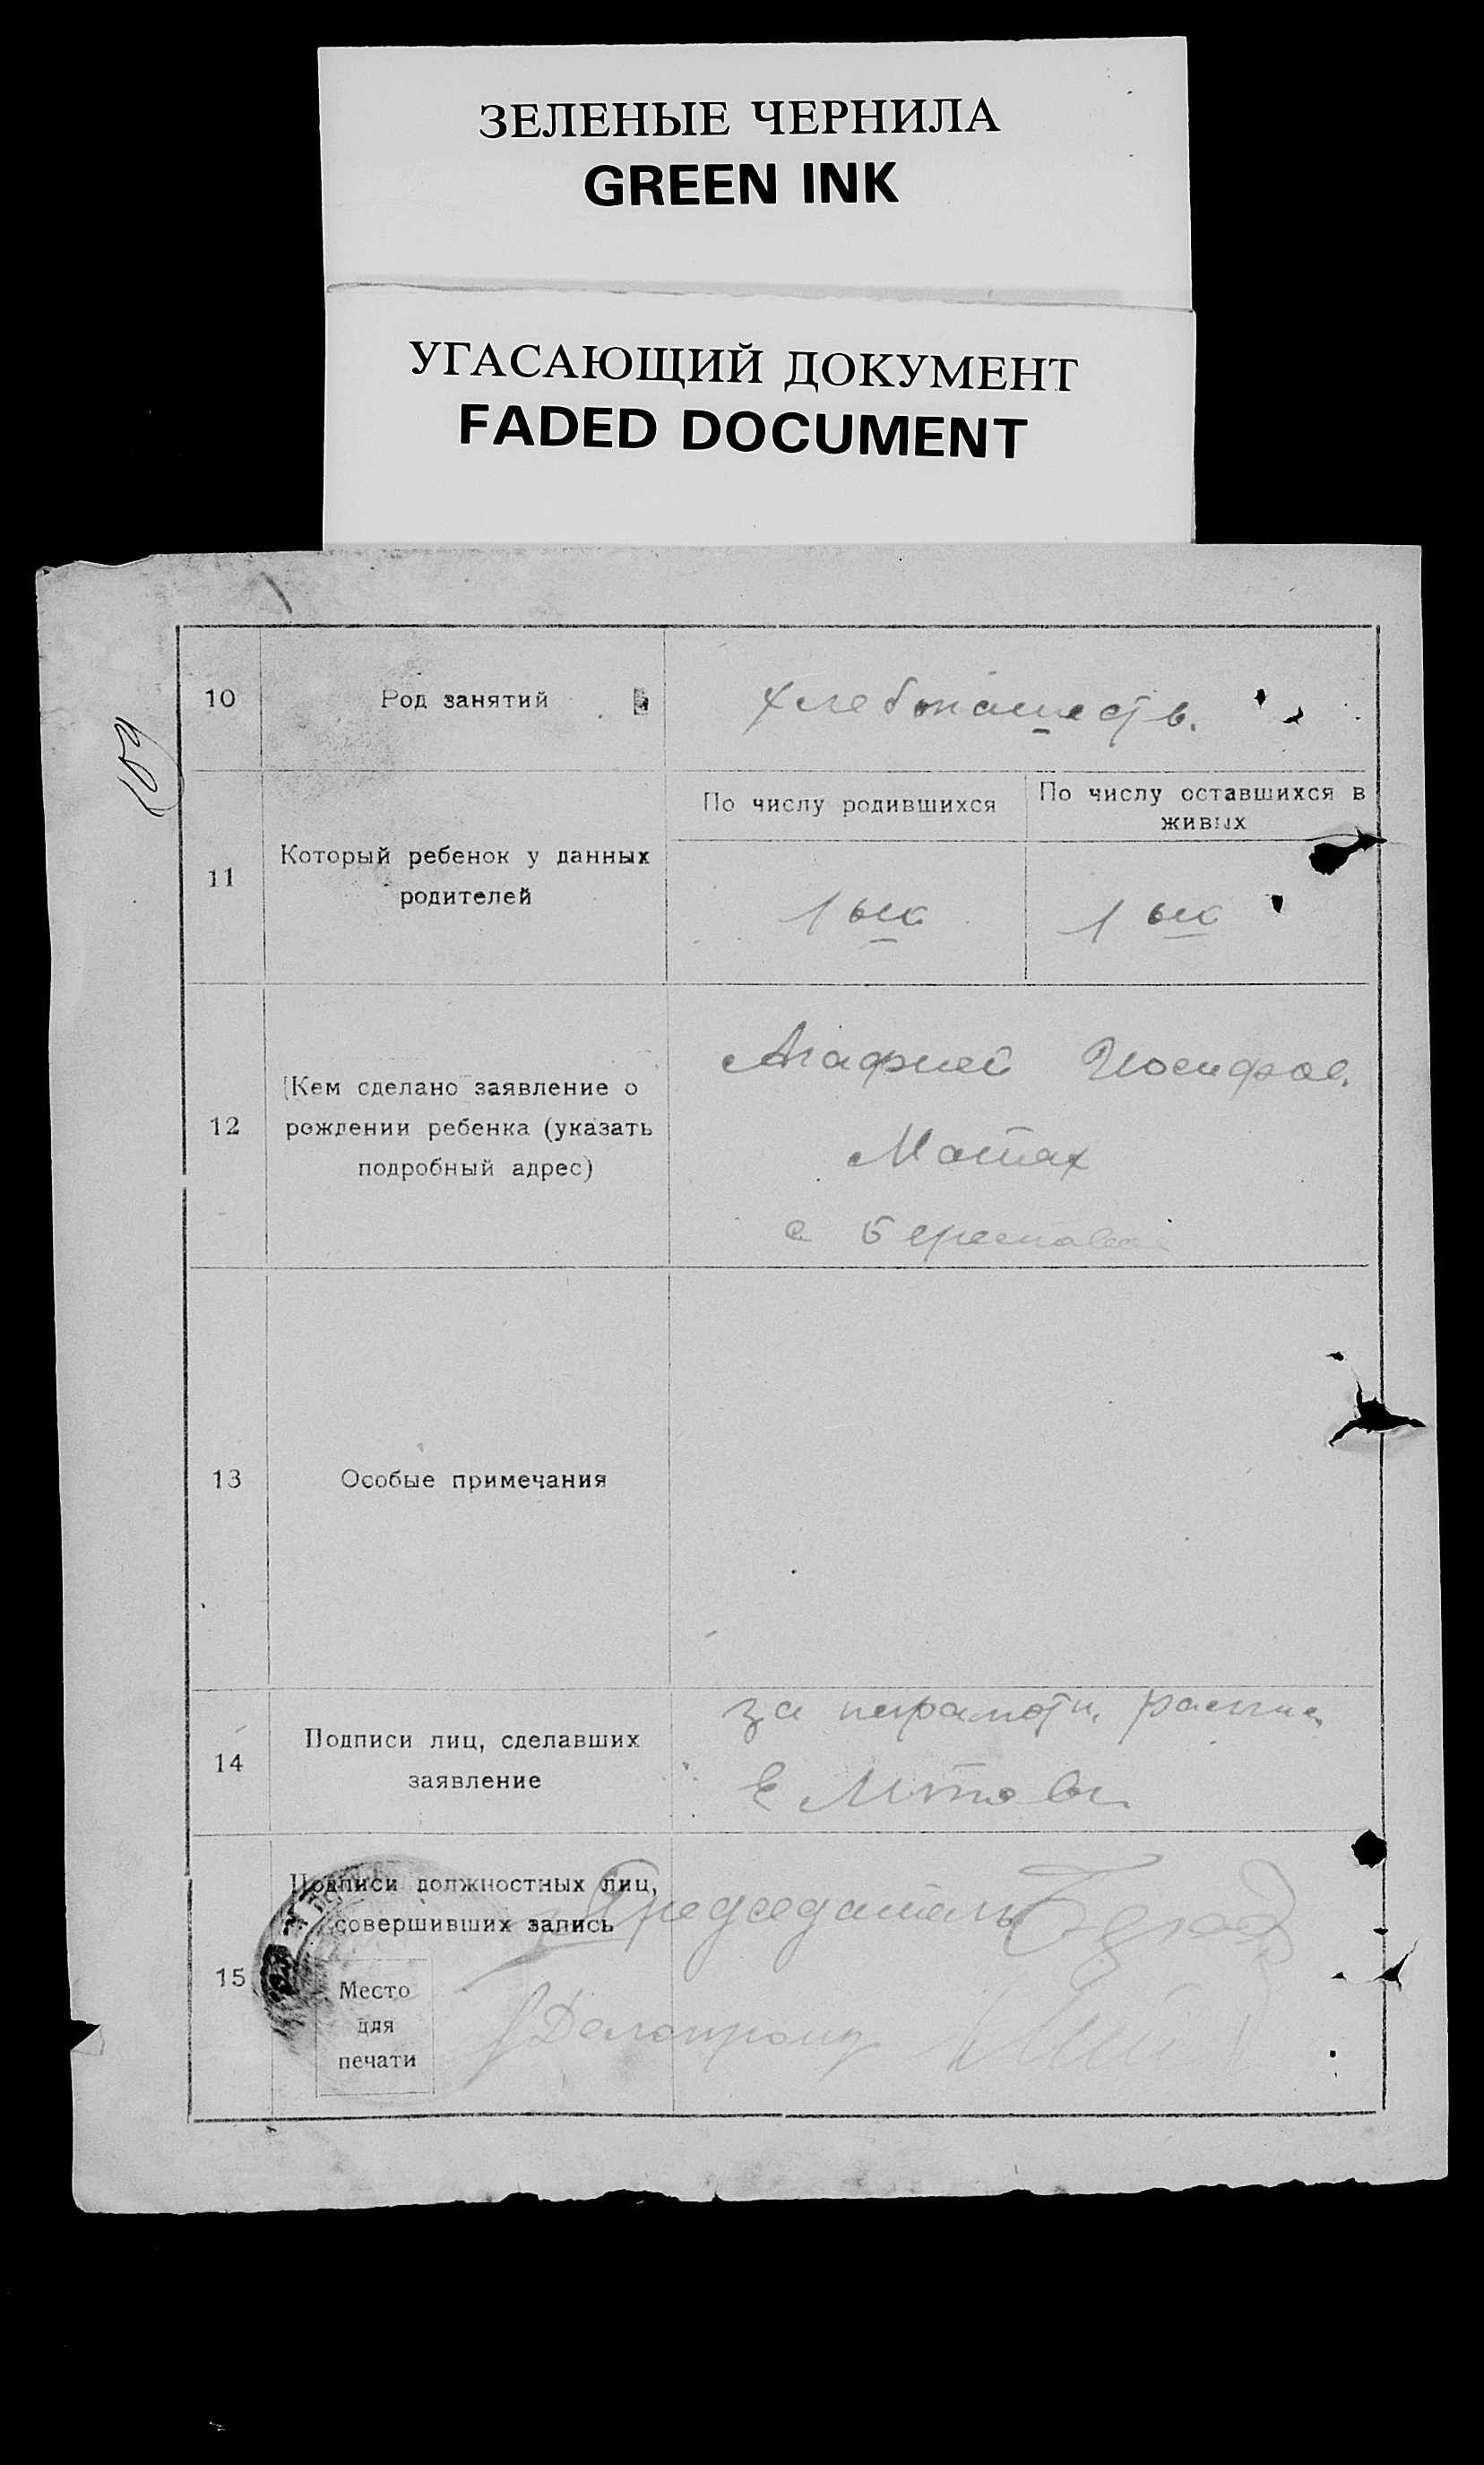 ЗЕЛЕНЫЕ ЧЕРНИЛА
GREEN INK
УГАСАЮЩИЙ ДОКУМЕНТ
FADED DOCUMENT
10 Род занятий Хлебопашеств.
11 Который ребенок у данных родителей
По числу родившихся
По числу оставшихся в живых
1 ый
1 ый
12 Кем сделано заявление о
рождении ребенка (указать
подробный адрес)
Агафией Иосифов.
с
13 Особые примечания
14 Подписи лиц, сделавших
заявление
за неграмотн.
Е
15 Подписи должностных лиц,
совершивших запись
Председатель
Место
для
печати